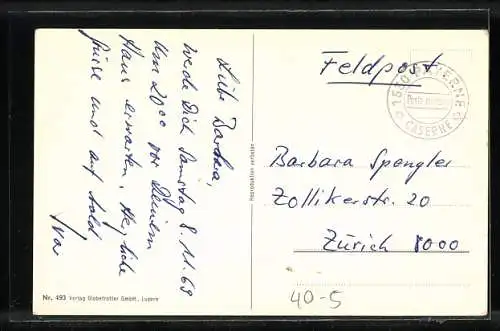 Liebe Barbara,
werde Dich Samstag 8.11.69
um 2000 vor Deinem
Haus erwarten. Herzliche
Grüsse und auf bald
Feldpost
1530 PAYERNE
CASERNE
Barbara Spengler
Zollikerstr. 20
Zürich 8000
40-5
Reproduktion verboten
Nr. 493 Verlag Globetrotter GmbH., Luzern